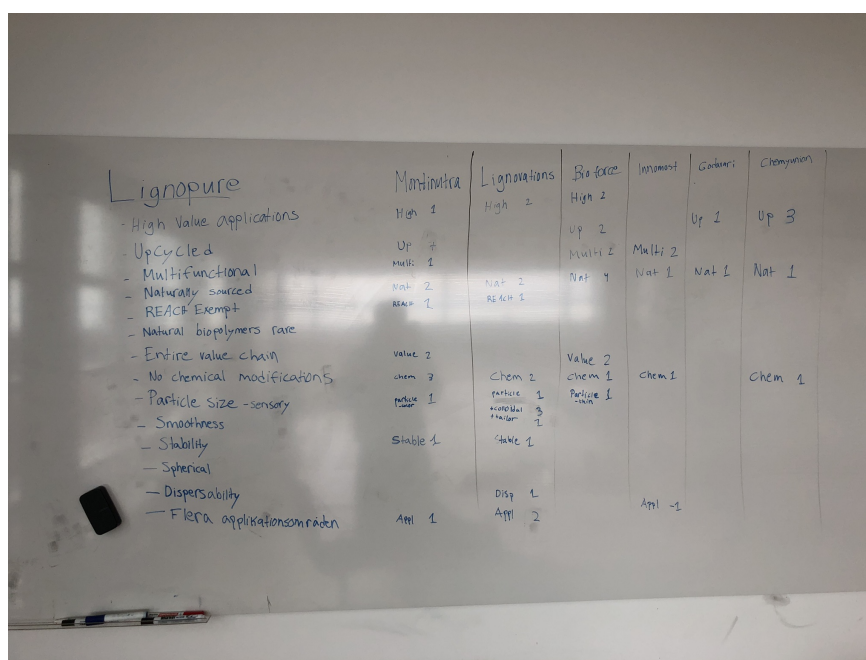 Lignopure Montinutra Lignovations Bioforce Innomost Chemyunion
- High Value applications High 1 High 2 High 2
- UpCycled Up Up 2 Up 1 Up 3
- Multifunctional Multi 1 Multi 2 Multi 2
- Naturally sourced Nat 2 Nat 2 Nat 4 Nat 1 Nat 1 Nat 1
- REACH Exempt REACH 1 REACH 1
- Natural biopolymers rare
- Entire value chain Value 2 Value 2
- No chemical modifications chem 3 Chem 2 chem 1 Chem 1 Chem 1
- Particle size - sensory particle 1 particle 1 Particle 1
- Smoothness +colloidal 3
+tailor 1
- Stability Stable 1 Stable 1
- Spherical
- Dispersability Disp 1
- Flera applikationsområden Appl 1 Appl 2 Appl -1